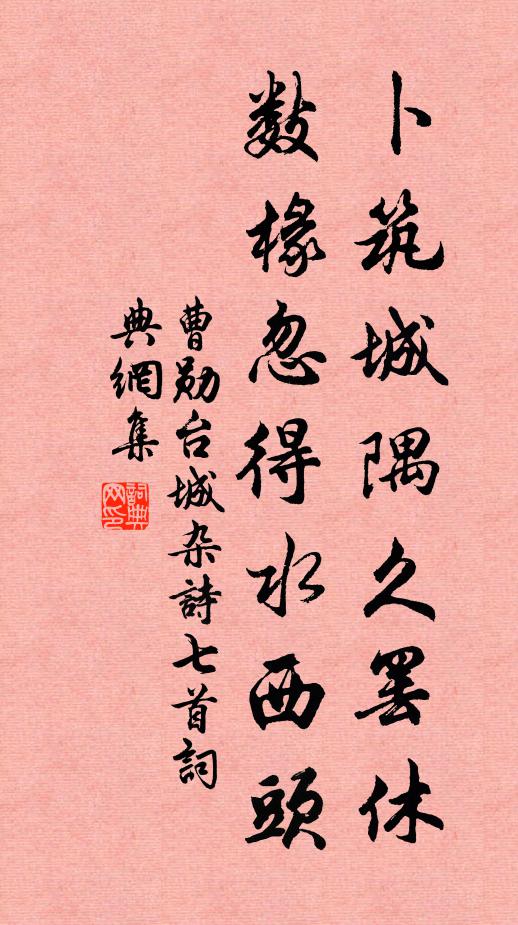 卜筑城隅久罢休
数椽忽得水西頭
曹勛台城杂詩七首詞
典網集
詞典网印